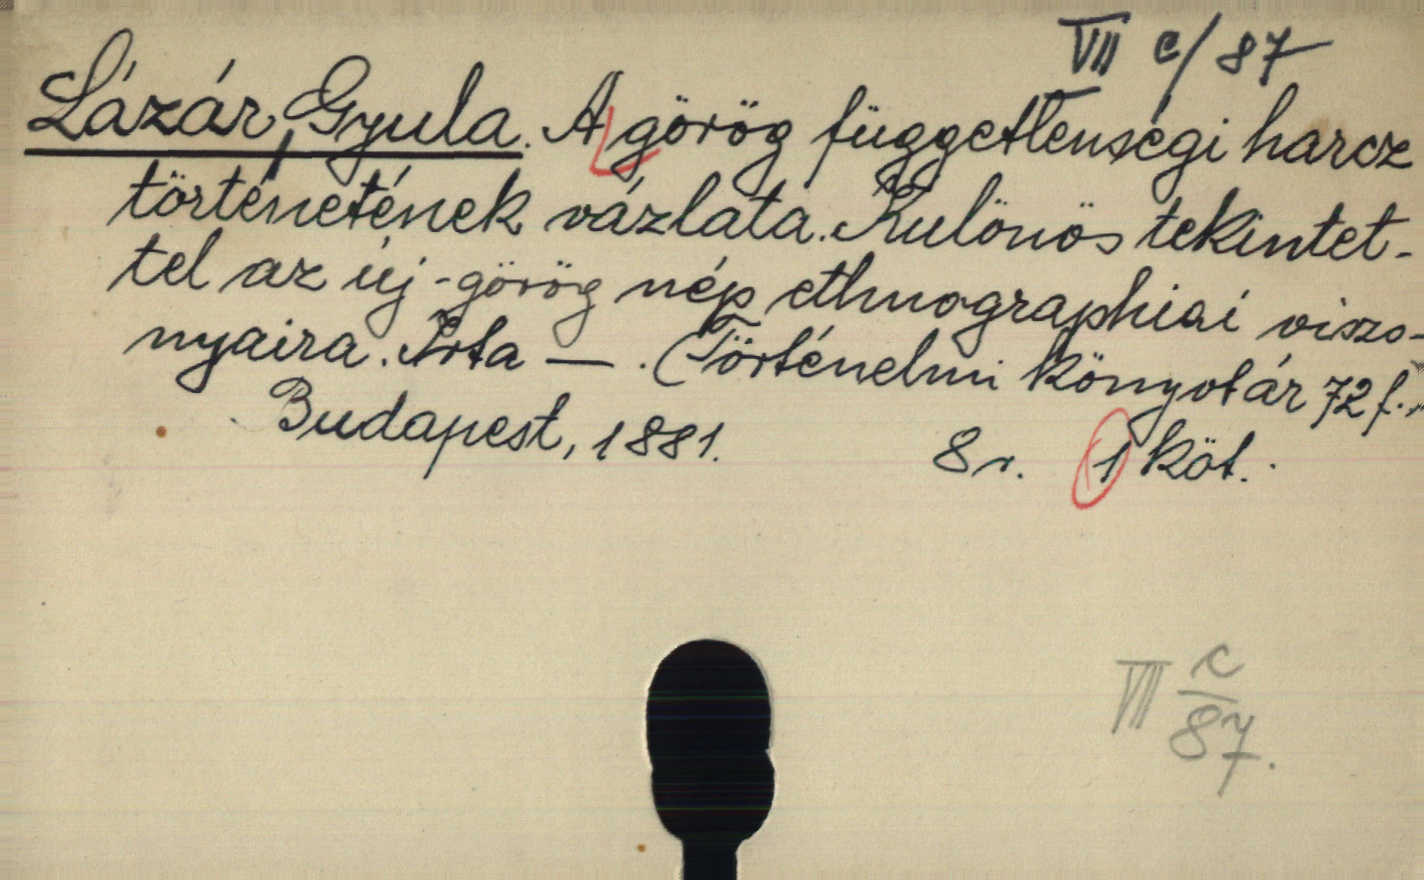 VII c/87
Lázár, Gyula. A görög függetlenségi harcz
történetének vázlata. Kulönös tekintet-
tel az új-görög nép ethnographiai viszo-
nyaira. Irta — . (Történelmi könyvtár 72 f.)
Budapest, 1881. 8 r. 1 köt.
VII c/87.